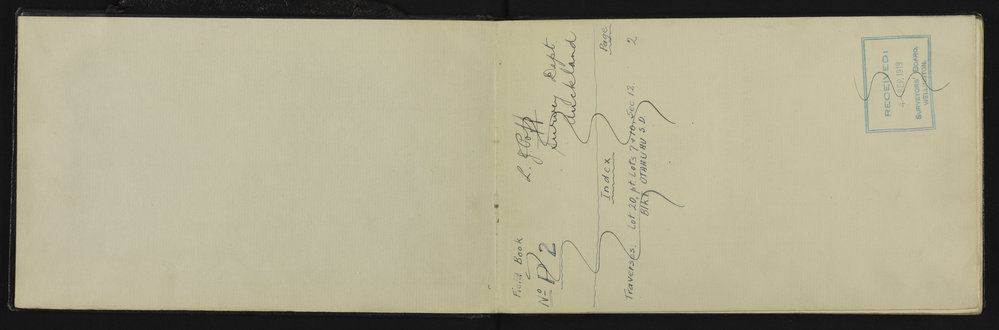 Field Book
No P 2
L. J. Poff
Survey Dept
Auckland
Index
Page
Traverses. Lot 20, pt Lots 7 & 10, Sec 12. 2
Blk I OTAHUHU S.D.
RECEIVED:
4 SEP 1919
SURVEYORS' BOARD,
WELLINGTON.